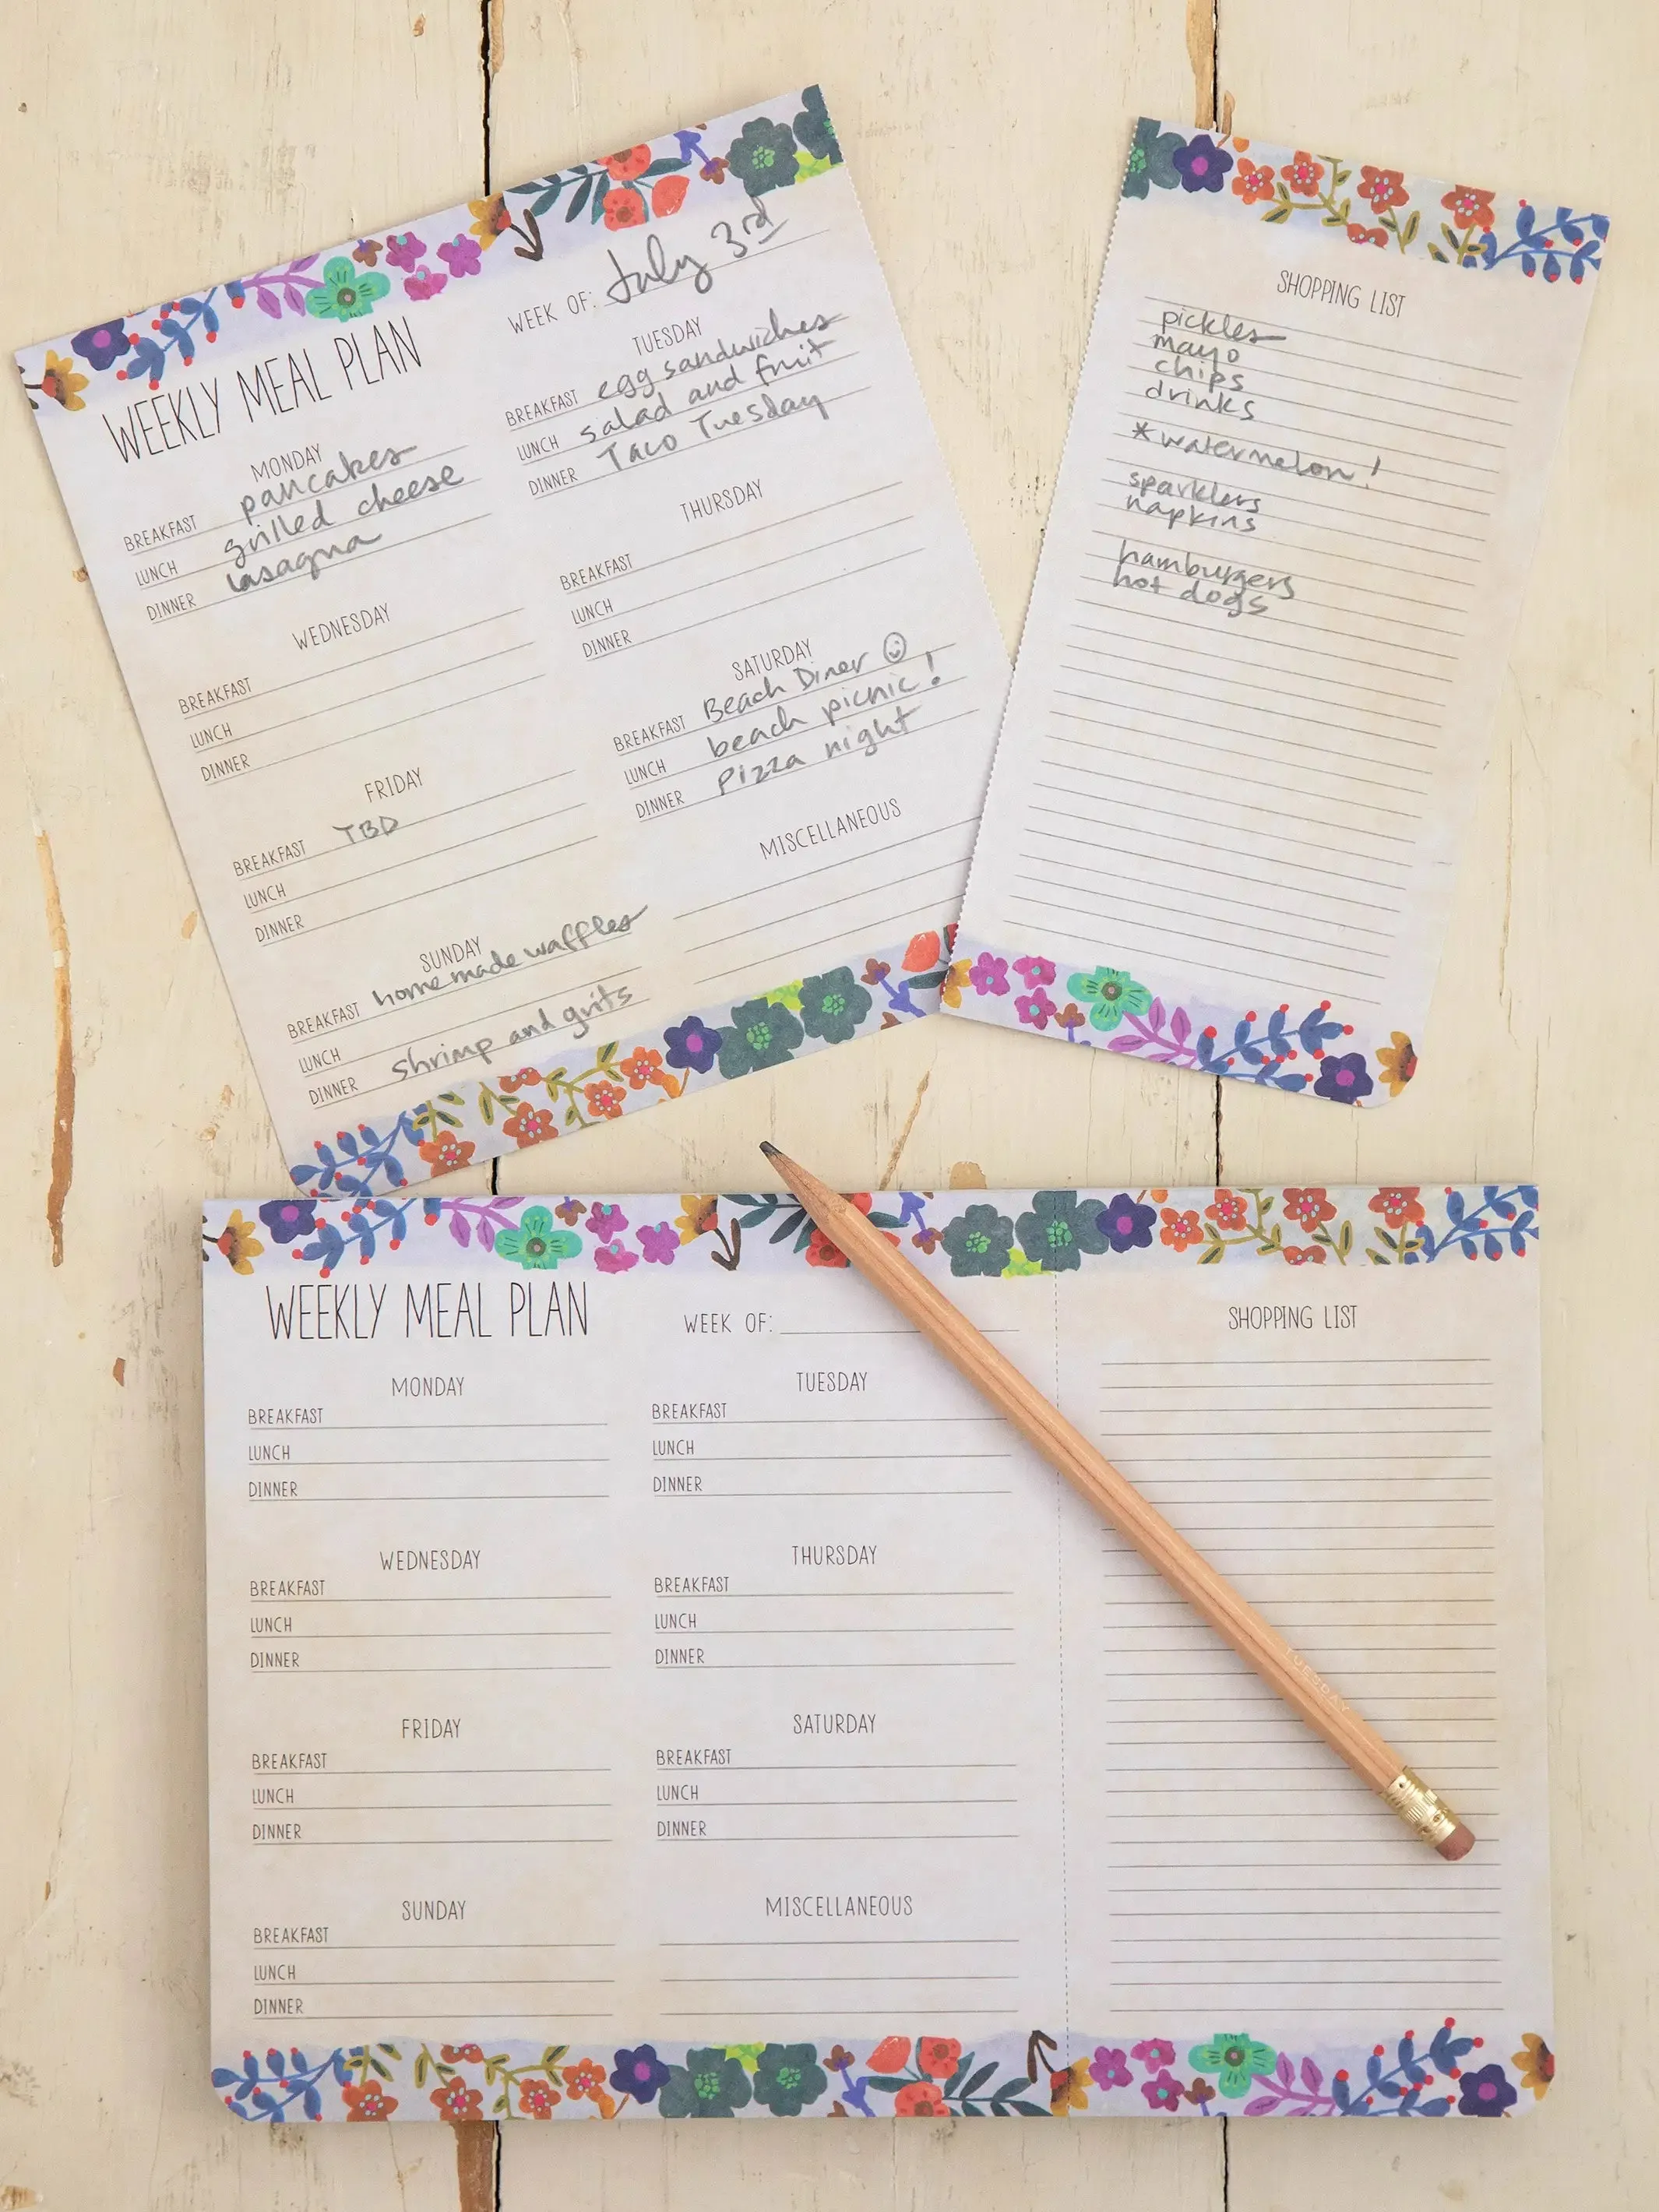 WEEKLY MEAL PLAN
WEEK OF: July 3rd
MONDAY
BREAKFAST pancakes
LUNCH grilled cheese
DINNER lasagna
TUESDAY
BREAKFAST egg sandwiches
LUNCH salad and fruit
DINNER Taco Tuesday
WEDNESDAY
BREAKFAST
LUNCH
DINNER
THURSDAY
BREAKFAST
LUNCH
DINNER
FRIDAY
BREAKFAST TBD
LUNCH
DINNER
SATURDAY
BREAKFAST Beach Diner ☺
LUNCH beach picnic!
DINNER pizza night
SUNDAY
BREAKFAST homemade waffles
LUNCH
DINNER shrimp and grits
MISCELLANEOUS
SHOPPING LIST
pickles
mayo
chips
drinks
*watermelon!
sparklers
napkins
hamburgers
hot dogs
WEEKLY MEAL PLAN
WEEK OF:
MONDAY
BREAKFAST
LUNCH
DINNER
TUESDAY
BREAKFAST
LUNCH
DINNER
WEDNESDAY
BREAKFAST
LUNCH
DINNER
THURSDAY
BREAKFAST
LUNCH
DINNER
FRIDAY
BREAKFAST
LUNCH
DINNER
SATURDAY
BREAKFAST
LUNCH
DINNER
SUNDAY
BREAKFAST
LUNCH
DINNER
MISCELLANEOUS
SHOPPING LIST
TUESDAY